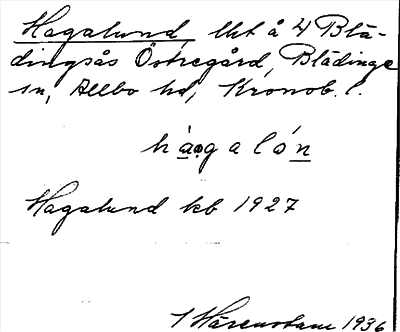 Hagalund, lht å 4 Blä-
dingsås Östregård, Blädinge
sn, Allbo hd, Kronob. l.
hàgalón
Hagalund kb 1927
1936